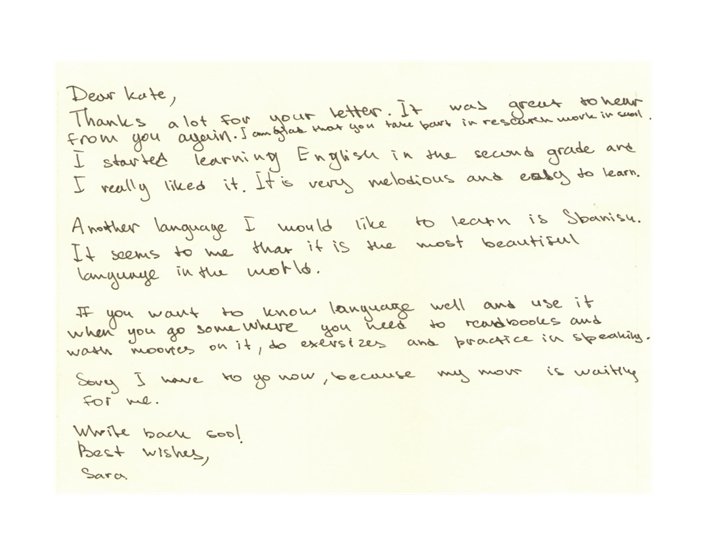 Dear Kate,
Thanks a lot for your letter. It was great to hear
from you again. I am glad that you take part in research work in scool.
I started learning English in the second grade and
I really liked it. It is very melodious and easy to learn.
Another language I would like to learn is Spanish.
It seems to me that it is the most beautiful
language in the world.
If you want to know language well and use it
when you go somewhere you need to read books and
wath moovies on it, do exersizes and practice in speaking.
Sorry I have to go now, because my mom is waiting
for me.
Write back soo!
Best wishes,
Sara